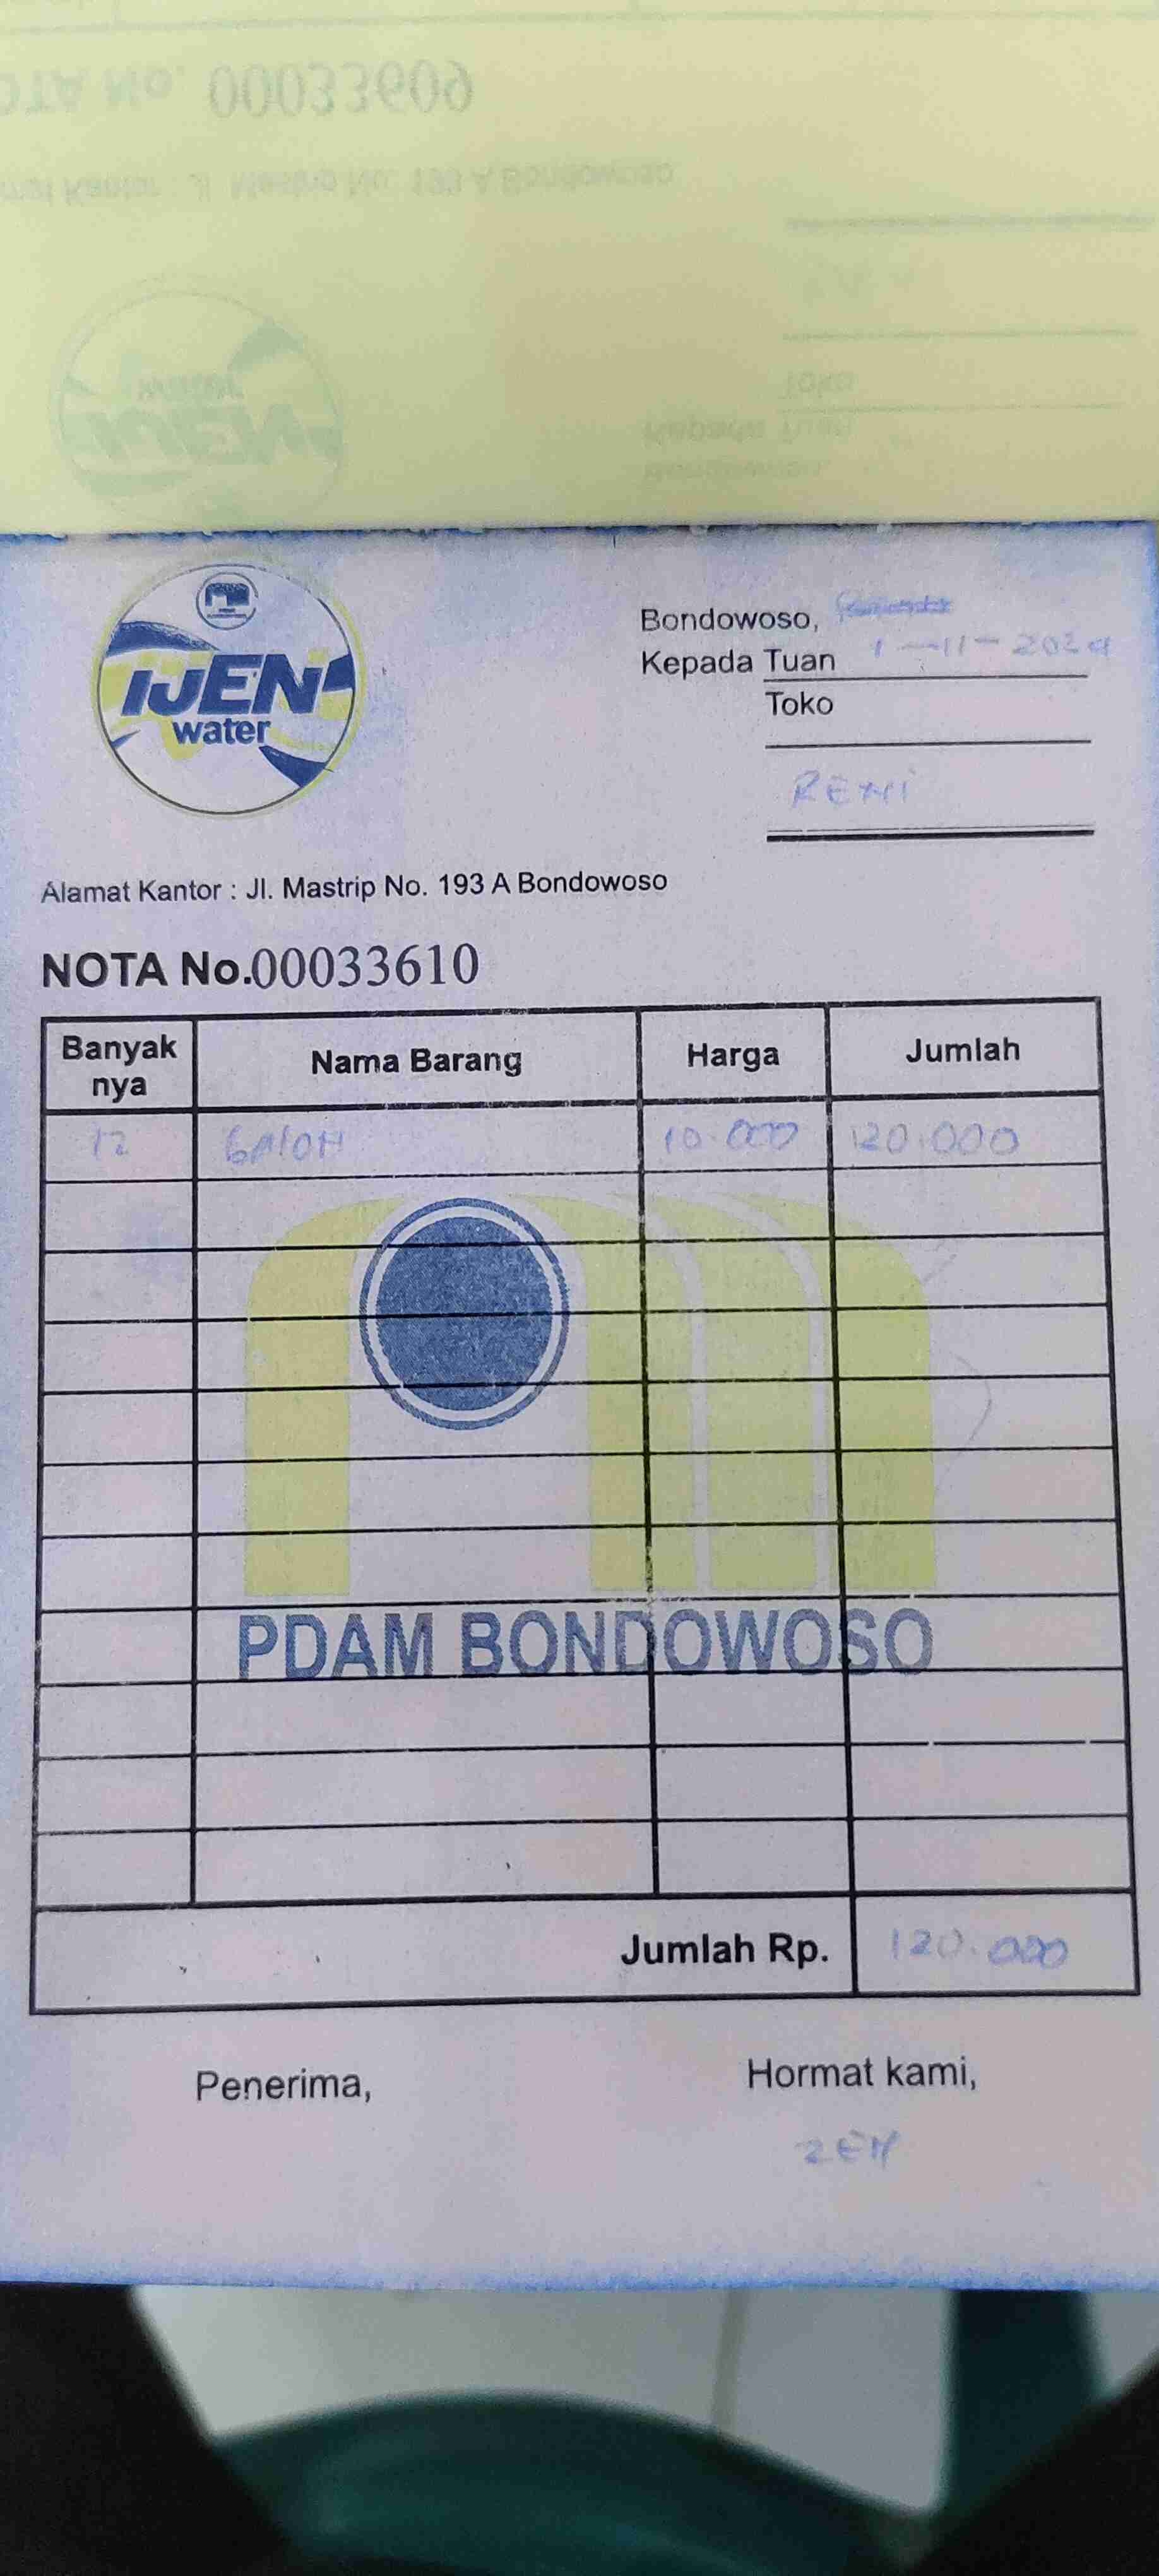 NOTA No. 00033609
Alamat Kantor : Jl. Mastrip No. 193 A Bondowoso
IJEN
water
Toko
Kepada Tuan
IJEN
water
Bondowoso,
1-11-2024
Kepada Tuan
Toko
RENI
Alamat Kantor : Jl. Mastrip No. 193 A Bondowoso
NOTA No.00033610
Banyak nya Nama Barang Harga Jumlah
12 GAlON 10.000 120.000
PDAM BONDOWOSO
Jumlah Rp. 120.000
Penerima, Hormat kami,
ZEN